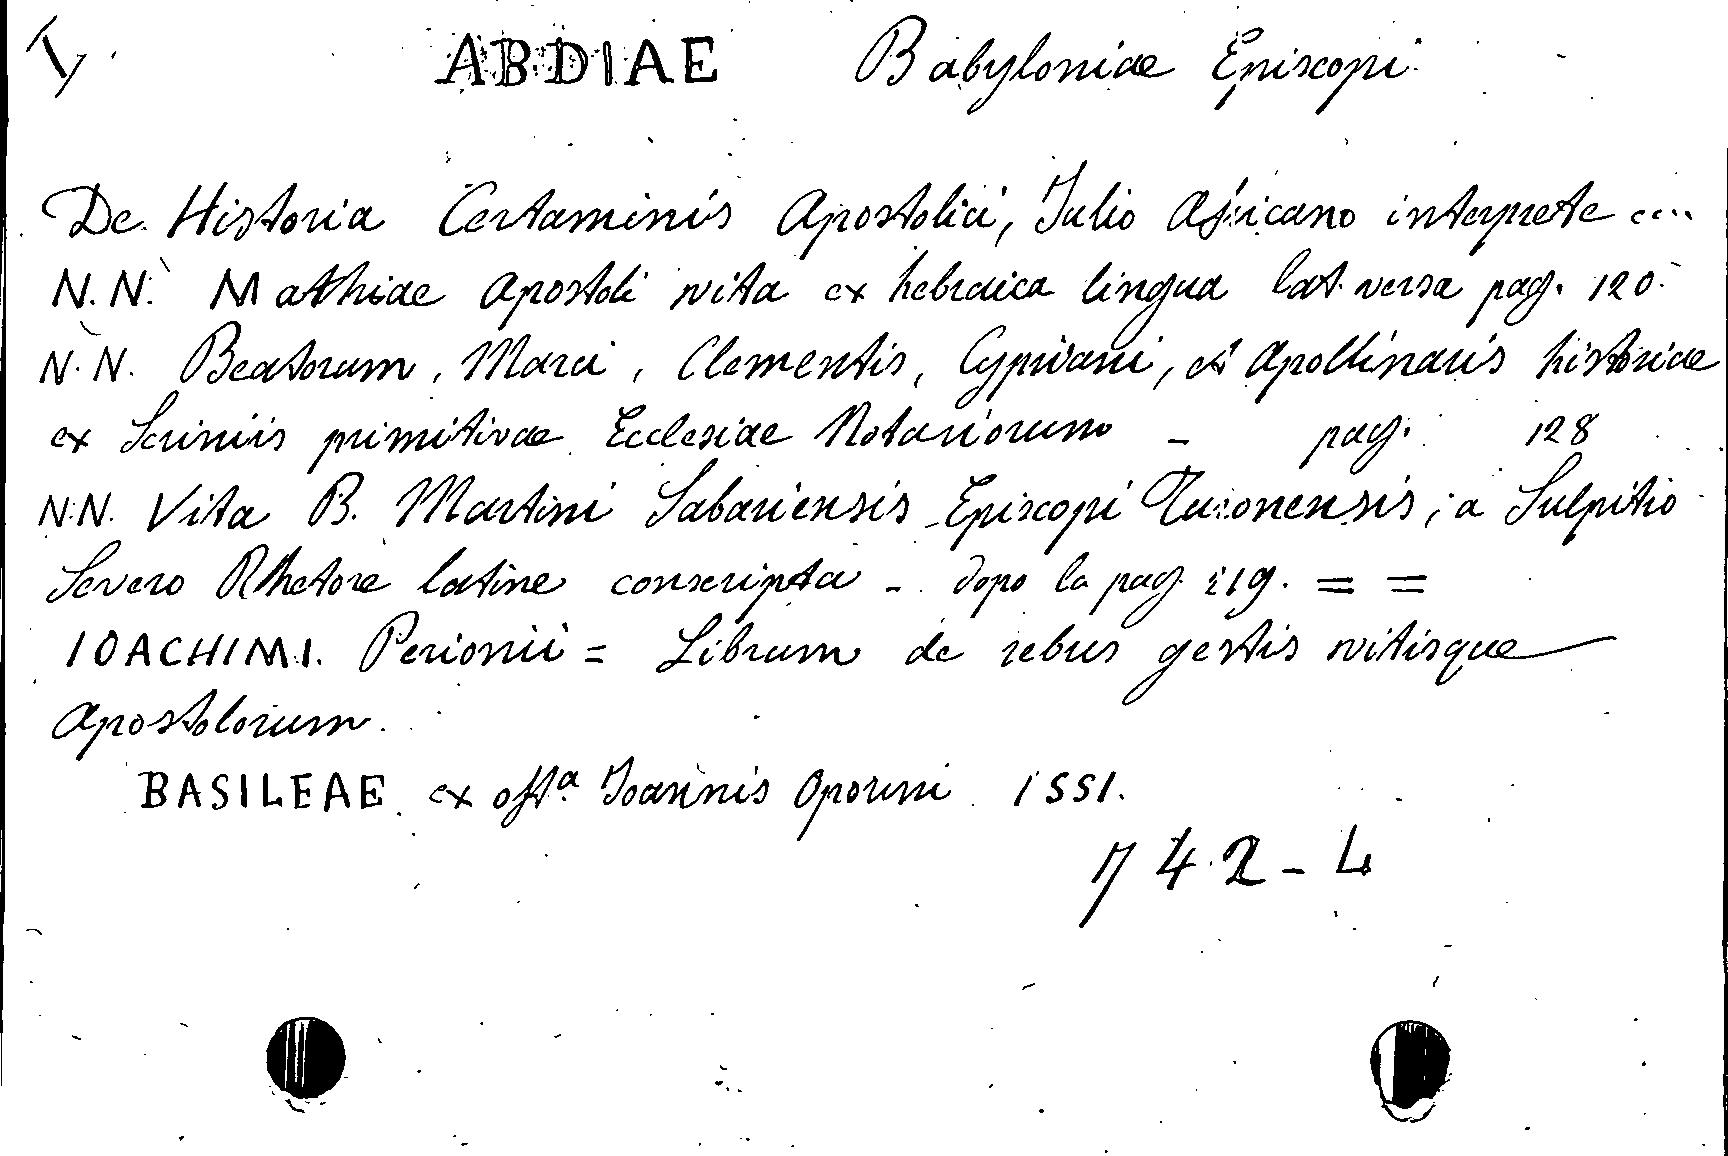 ABDIAE Babyloniae Episcopi
De Historia Certaminis Apostolici, Julio Africano interprete ....
N.N. Mathiae Apostoli vita ex hebraica lingua lat. versa pag. 120.
N.N. Beatorum, Marci, Clementis, Cypriani, et Apollinaris historiae
ex Scriniis primitivae Ecclesiae Notariorum - pag. 128
N.N. Vita B. Martini Sabariensis Episcopi Turonensis; a Sulpitio
Severo Rhetore latine conscripta - dopo la pag. 219. = =
IOACHIMI. Perionii = Librum de rebus gestis vitisque
Apostolorum.
BASILEAE ex offa. Joannis Oporini 1551.
742-4